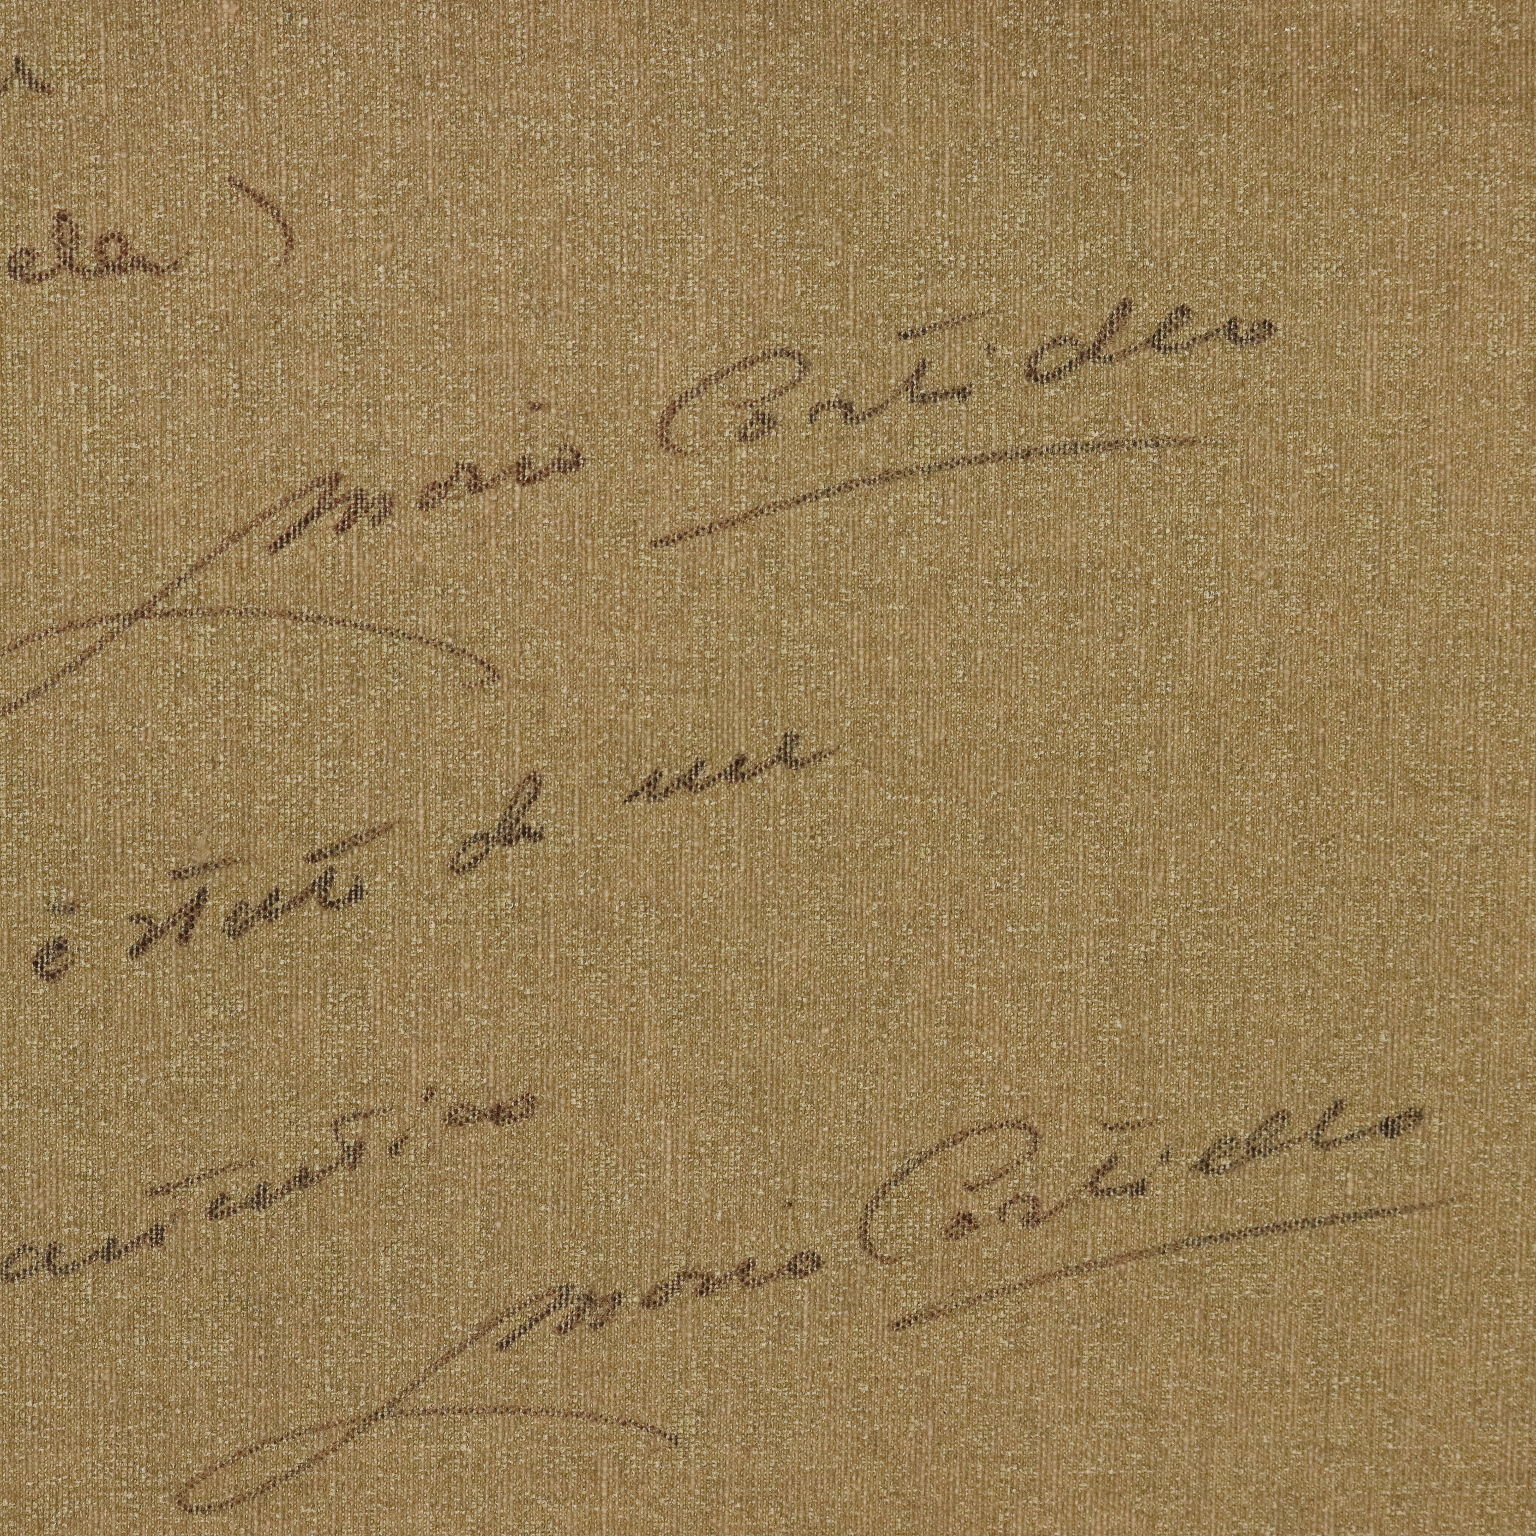 ela)
Mario Cortiello
è stato da me
autentico
Mario Cortiello